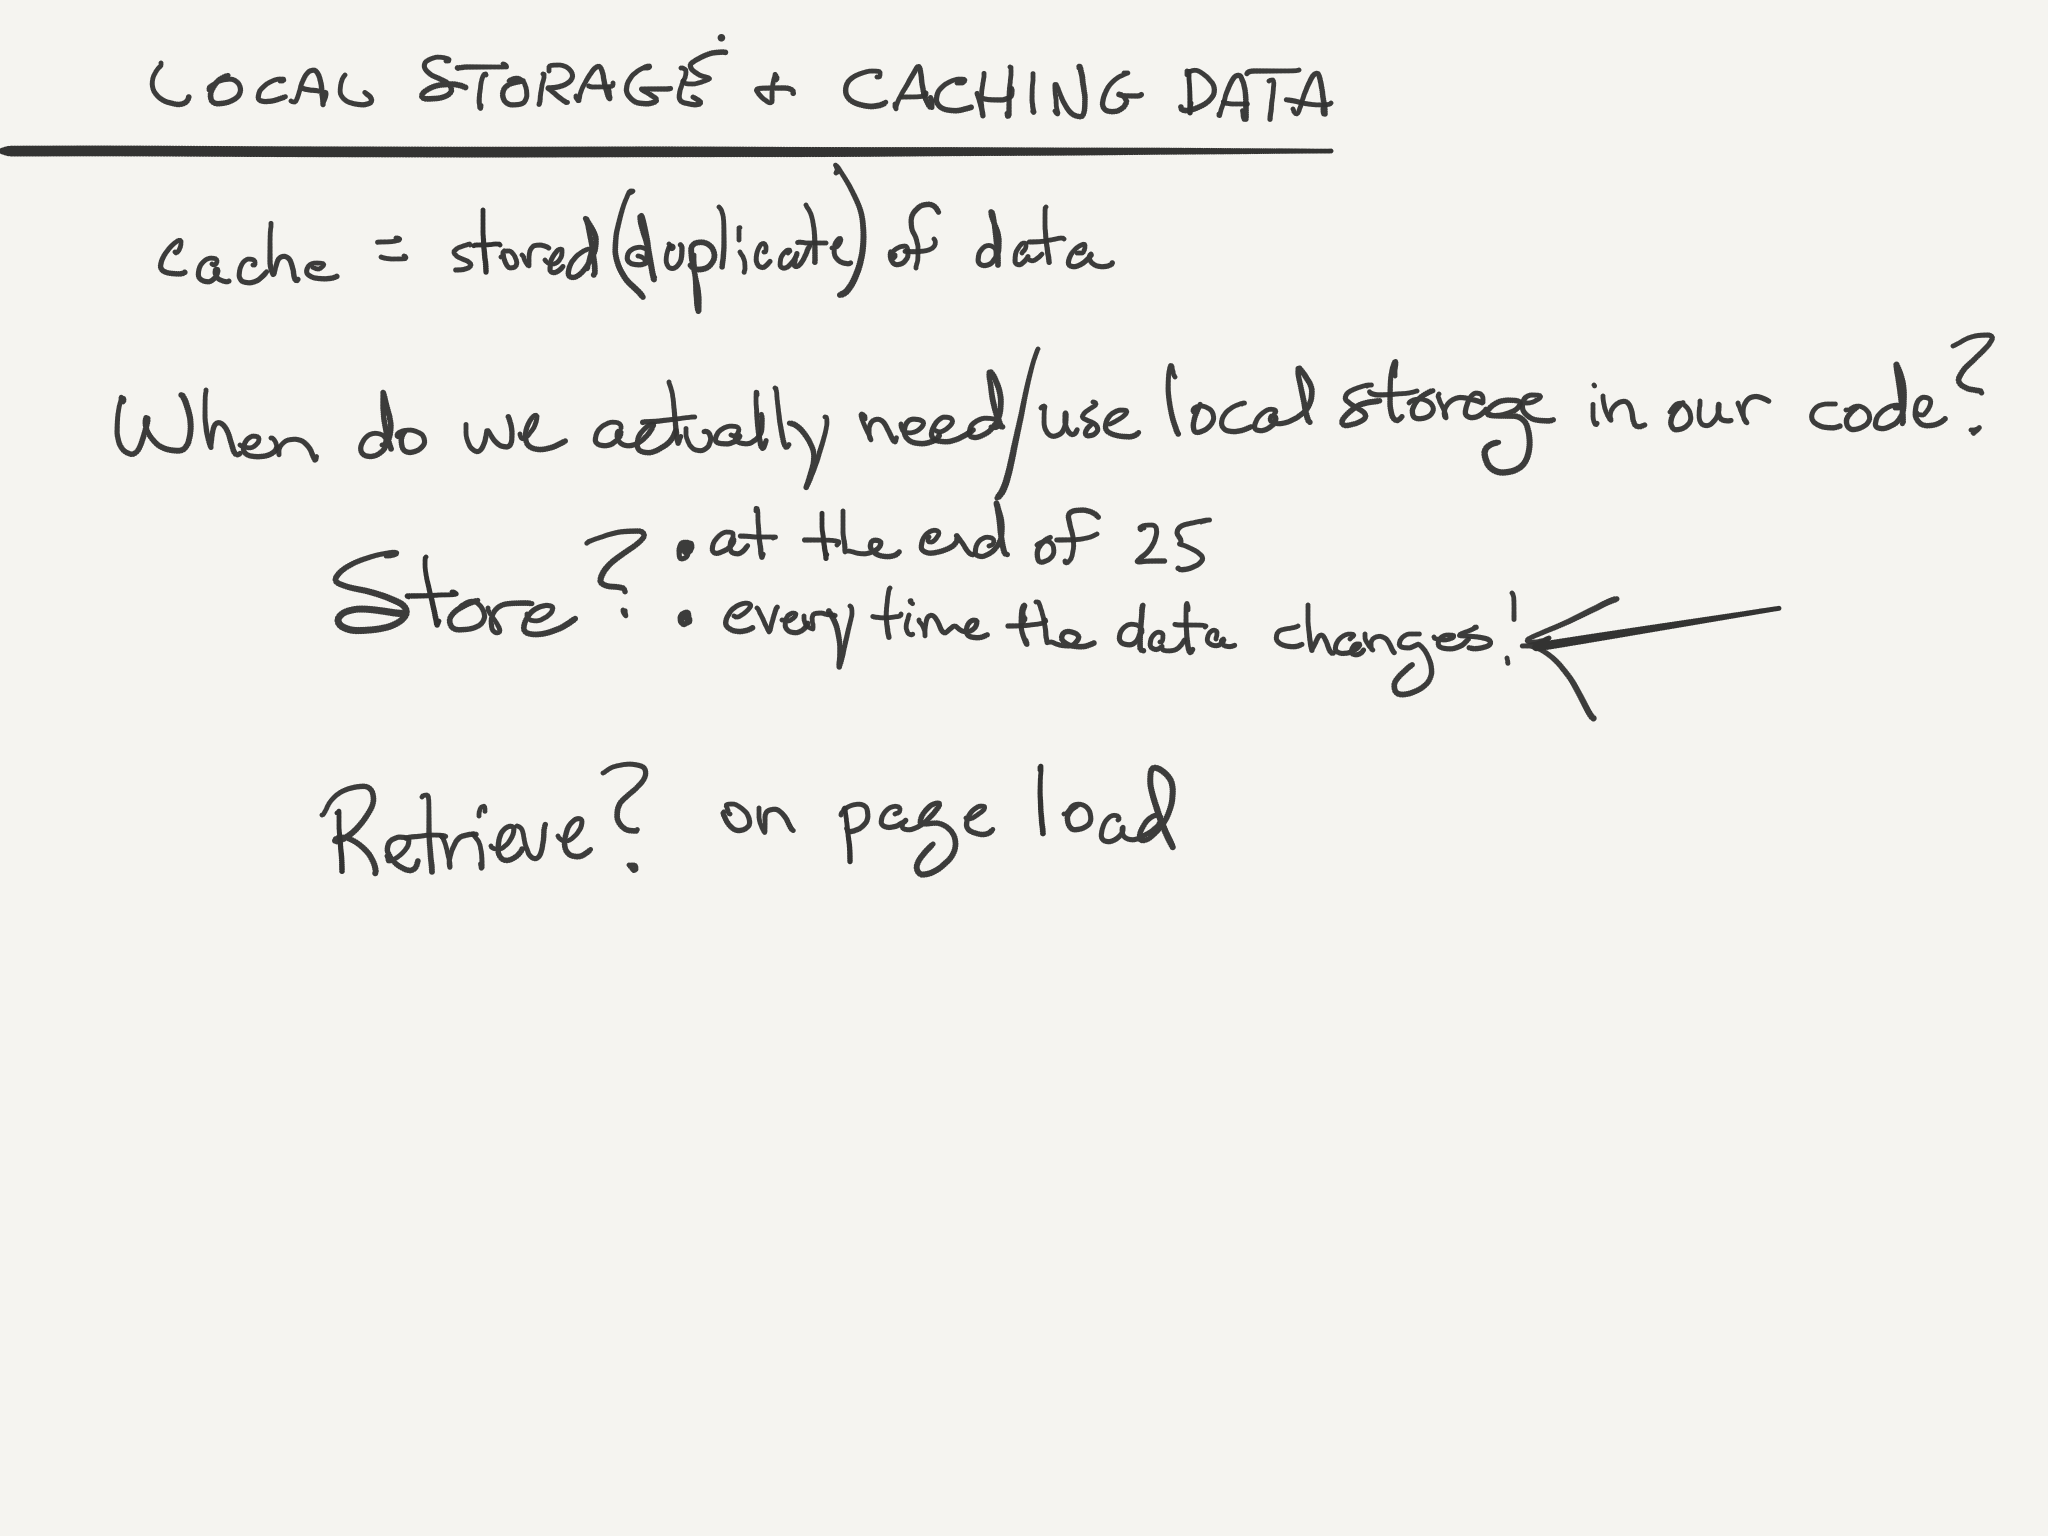 LOCAL STORAGE + CACHING DATA
cache = stored (duplicate) of data
When do we actually need/use local storage in our code?
Store? • at the end of 25
• every time the data changes!
Retrieve? on page load